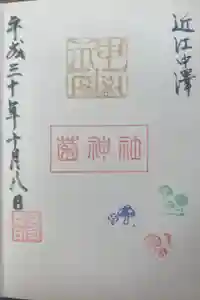 近江中澤
菌神社
平成三十年十月八日